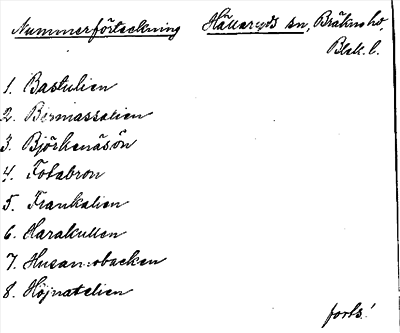 Nummerförteckning Hällaryds sn, Bräkne hd,
Blek. l.
1. Bastulien
2. Bermassalien
3. Björkenäsön
4. Fotabron
5. Frankalien
6. Harakullen
7. Husamobacken
8. Höjnatelien
forts!